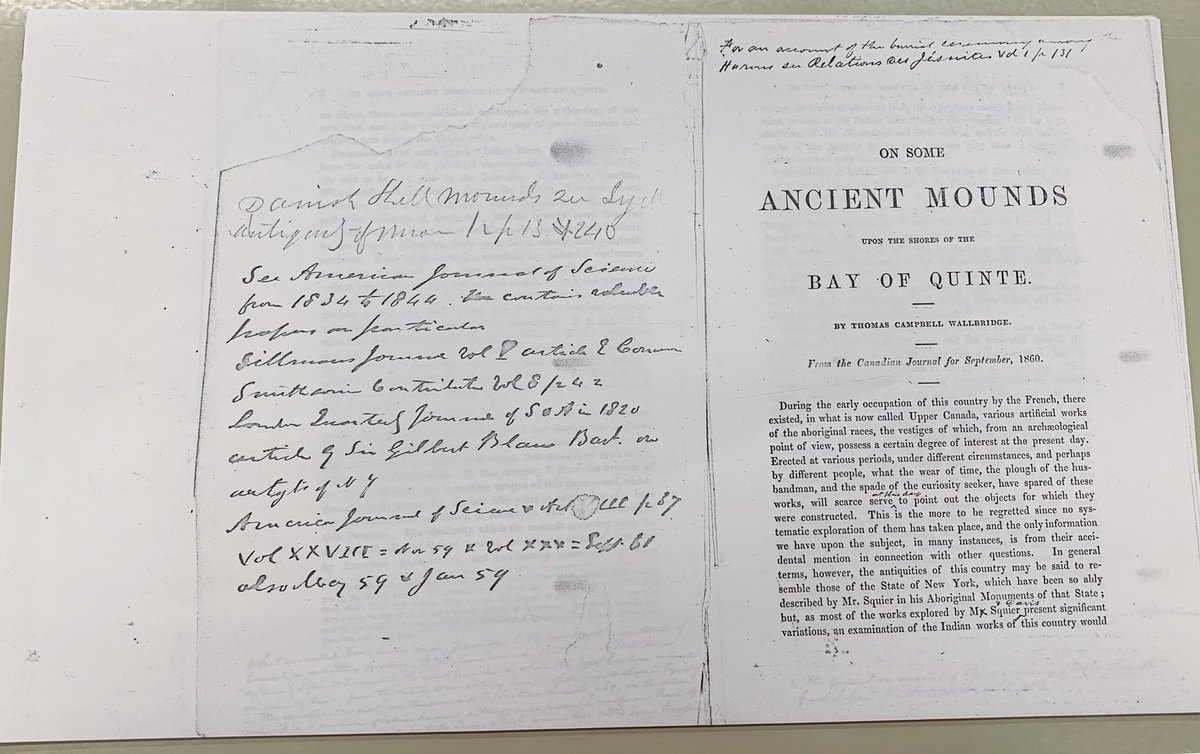 Danish Shell Mounds see Lyell
antiquity of man p 13. & 240
See American Journal of Science
from 1834 to 1844. contains valuable
papers on particular
Sillimans Journal Vol article E Cornen
Smithsonian Contribution Vol 8 p 242
London Quarterly Journal of S & A in 1820
article by Sir Gilbert Blane Bart. on
of N Y
America Journal of Science & Art III p 37
Vol XXVIII = Nov 59 & Vol XXX = Sept 60
also May 59 & Jan 59
For an account of the burial ceremony among the
Hurons see Relations des Jésuites Vol 1 p 131
ON SOME
ANCIENT MOUNDS
UPON THE SHORES OF THE
BAY OF QUINTE.
BY THOMAS CAMPBELL WALLBRIDGE.
From the Canadian Journal for September, 1860.
During the early occupation of this country by the French, there
existed, in what is now called Upper Canada, various artificial works
of the aboriginal races, the vestiges of which, from an archæological
point of view, possess a certain degree of interest at the present day.
Erected at various periods, under different circumstances, and perhaps
by different people, what the wear of time, the plough of the hus-
bandman, and the spade of the curiosity seeker, have spared of these
works, will scarce serve at this day to point out the objects for which they
were constructed. This is the more to be regretted since no sys-
tematic exploration of them has taken place, and the only information
we have upon the subject, in many instances, is from their acci-
dental mention in connection with other questions. In general
terms, however, the antiquities of this country may be said to re-
semble those of the State of New York, which have been so ably
described by Mr. Squier in his Aboriginal Monuments of that State;
but, as most of the works explored by Mr Squier & Davis present significant
variations, an examination of the Indian works of this country would